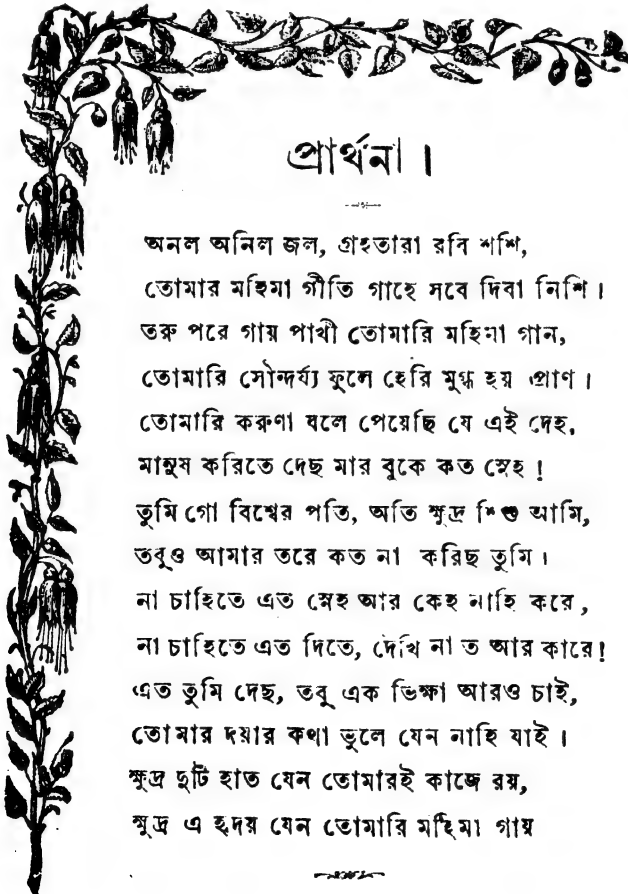 প্রার্থনা।
অনল অনিল জল, গ্রহতারা রবি শশি,
তোমার মহিমা গীতি গাহে সবে দিবা নিশি।
তরু পরে গায় পাখী তোমারি মহিমা গান,
তোমারি সৌন্দর্য্য ফুলে হেরি মুগ্ধ হয় প্রাণ।
তোমারি করুণা বলে পেয়েছি যে এই দেহ,
মানুষ করিতে দেছ মার বুকে কত স্নেহ!
তুমি গো বিশ্বের পতি, অতি ক্ষুদ্র শিশু আমি,
তবুও আমার তরে কত না করিছ তুমি।
না চাহিতে এত স্নেহ আর কেহ নাহি করে,
না চাহিতে এত দিতে, দেখি না ত আর কারে!
এত তুমি দেছ, তবু এক ভিক্ষা আরও চাই,
তোমার দয়ার কথা ভুলে যেন নাহি যাই।
ক্ষুদ্র দুটি হাত যেন তোমারই কাজে রয়,
ক্ষুদ্র এ হৃদয় যেন তোমারি মহিমা গায়